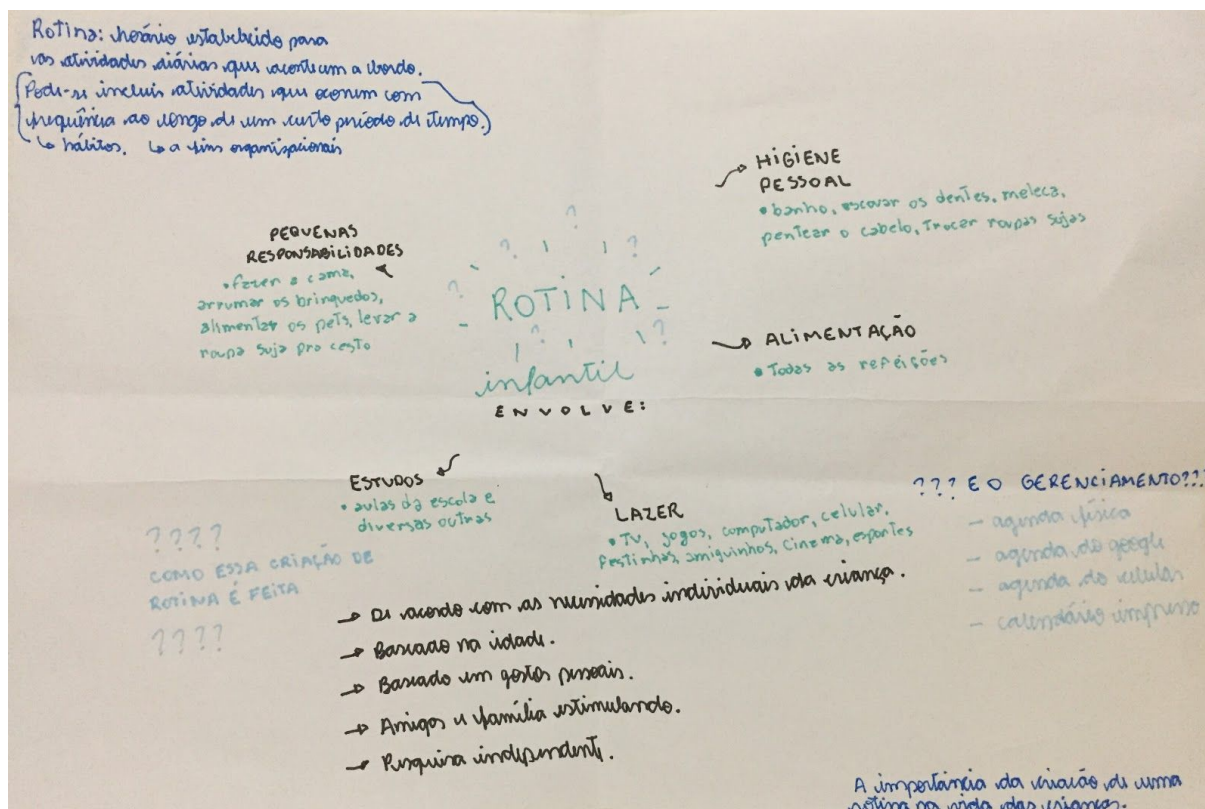 Rotina: horário estabelecido para
as atividades diárias que acontecem a bordo.
(Pode-se incluir atividades que ocorrem com
frequência ao longo de um curto período de tempo.)
↳ hábitos. ↳ a fins organizacionais
HIGIENE
PESSOAL
• banho, escovar os dentes, meleca,
pentear o cabelo, trocar roupas sujas
PEQUENAS
RESPONSABILIDADES
• fazer a cama,
arrumar os brinquedos,
alimentar os pets, levar a
roupa suja pro cesto
ROTINA
infantil
ENVOLVE:
ALIMENTAÇÃO
• Todas as refeições
ESTUDOS
• aulas da escola e
diversas outras
LAZER
• TV, jogos, computador, celular,
festinhas, amiguinhos, cinema, esportes
??? E O GERENCIAMENTO???
- agenda física
- agenda do google
- agenda do celular
- calendário impresso
????
COMO ESSA CRIAÇÃO DE
ROTINA É FEITA
????
→ De acordo com as necessidades individuais da criança.
→ Baseado na idade.
→ Baseado em gostos pessoais.
→ Amigos e família estimulando.
→ Pesquisa independente.
A importância da criação de uma
rotina na vida das crianças.